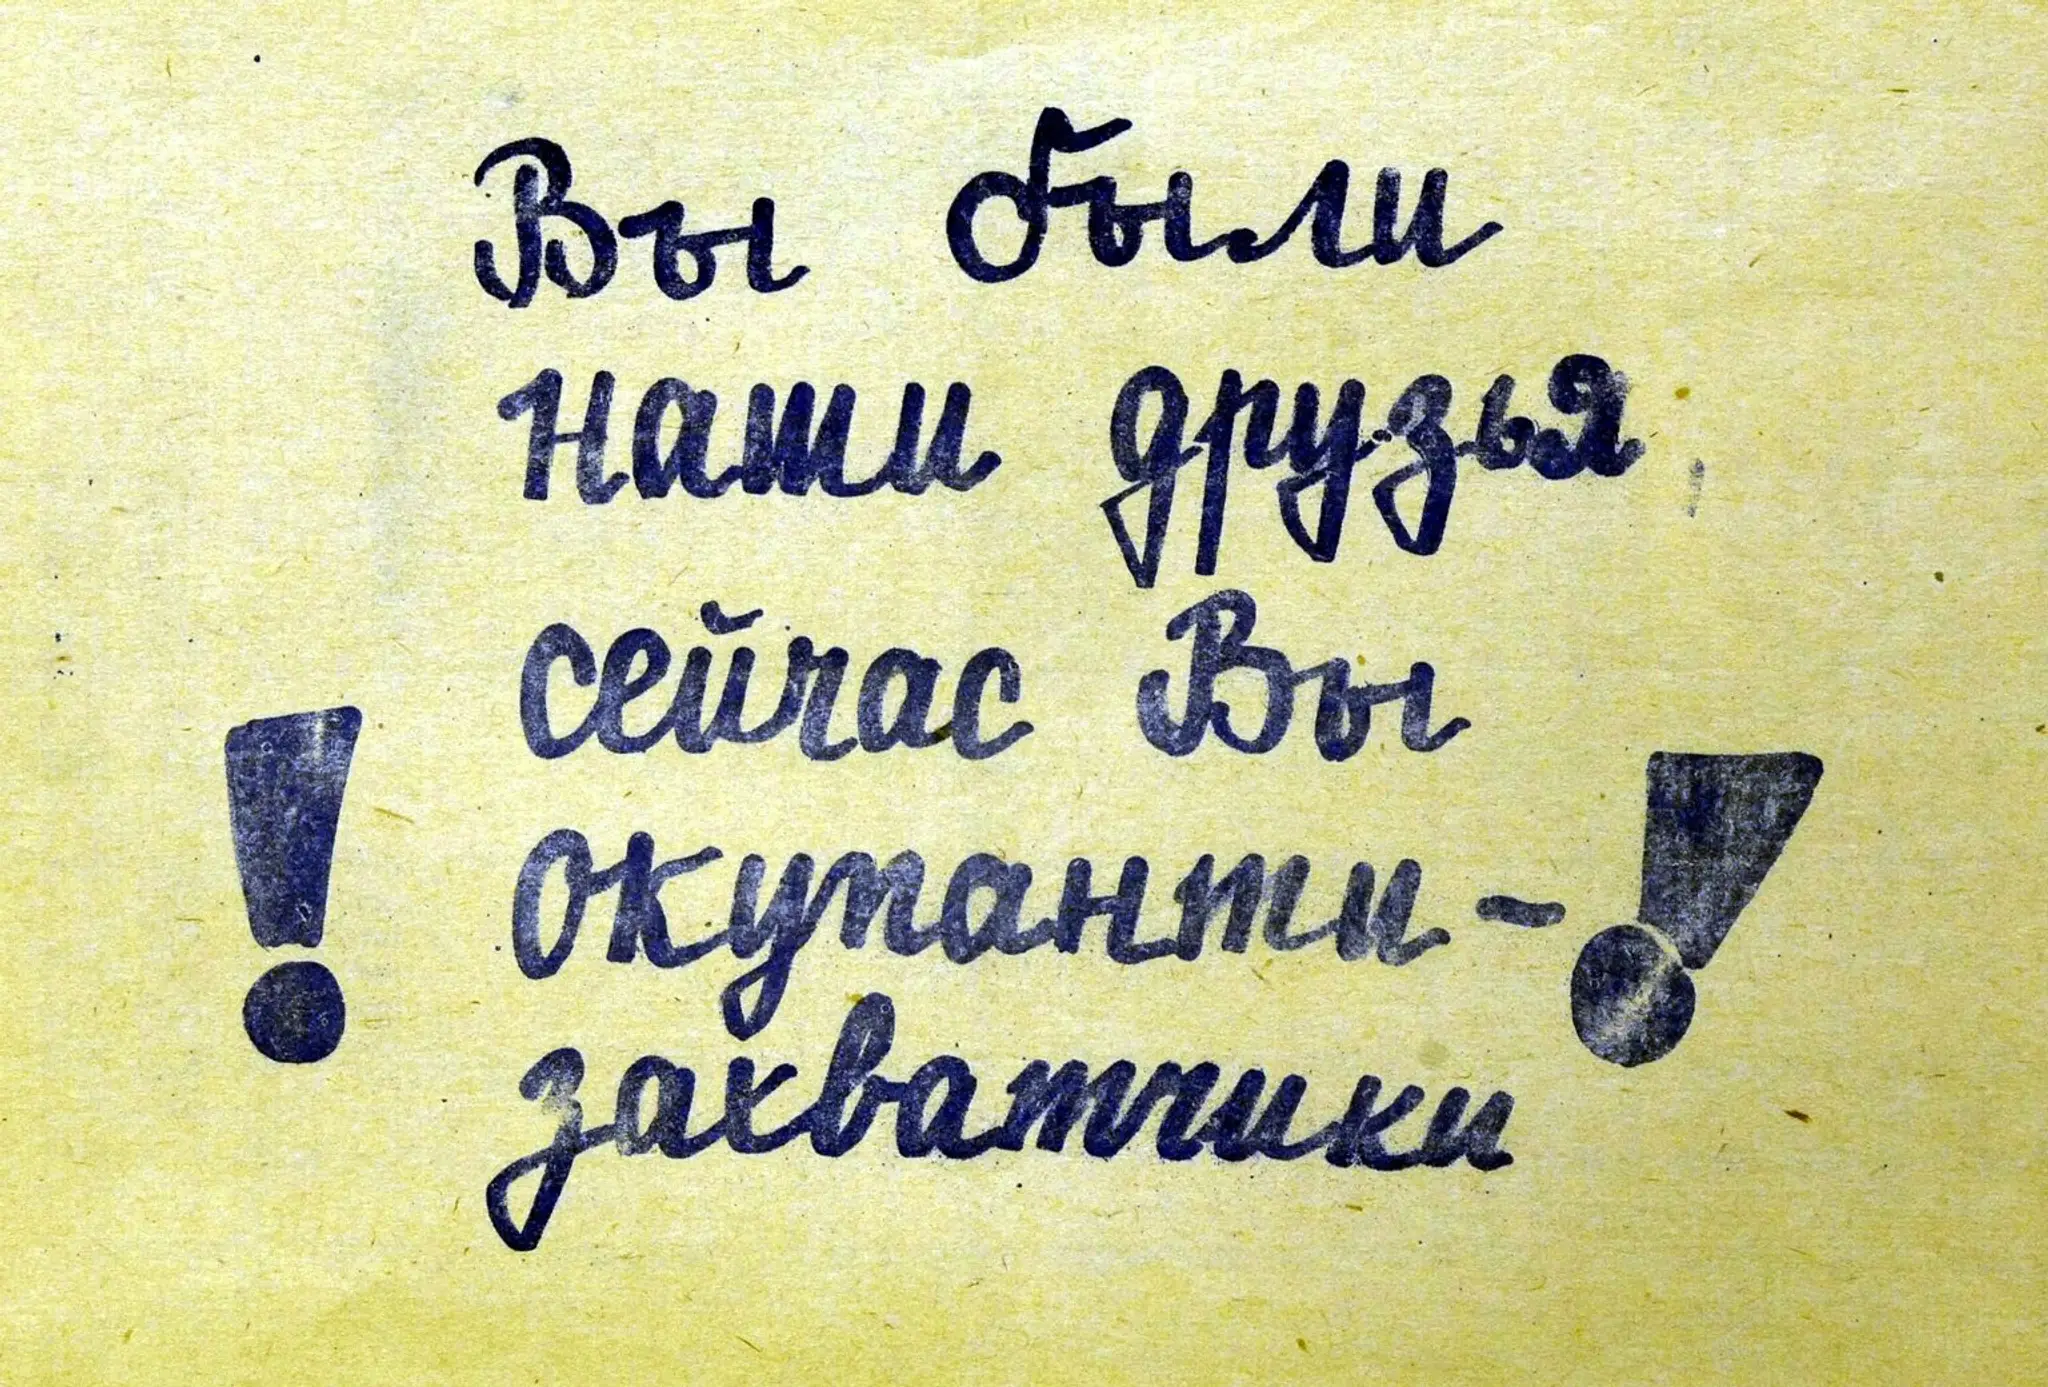 Вы были
наши друзья,
сейчас Вы
! окупанти - !
захватчики